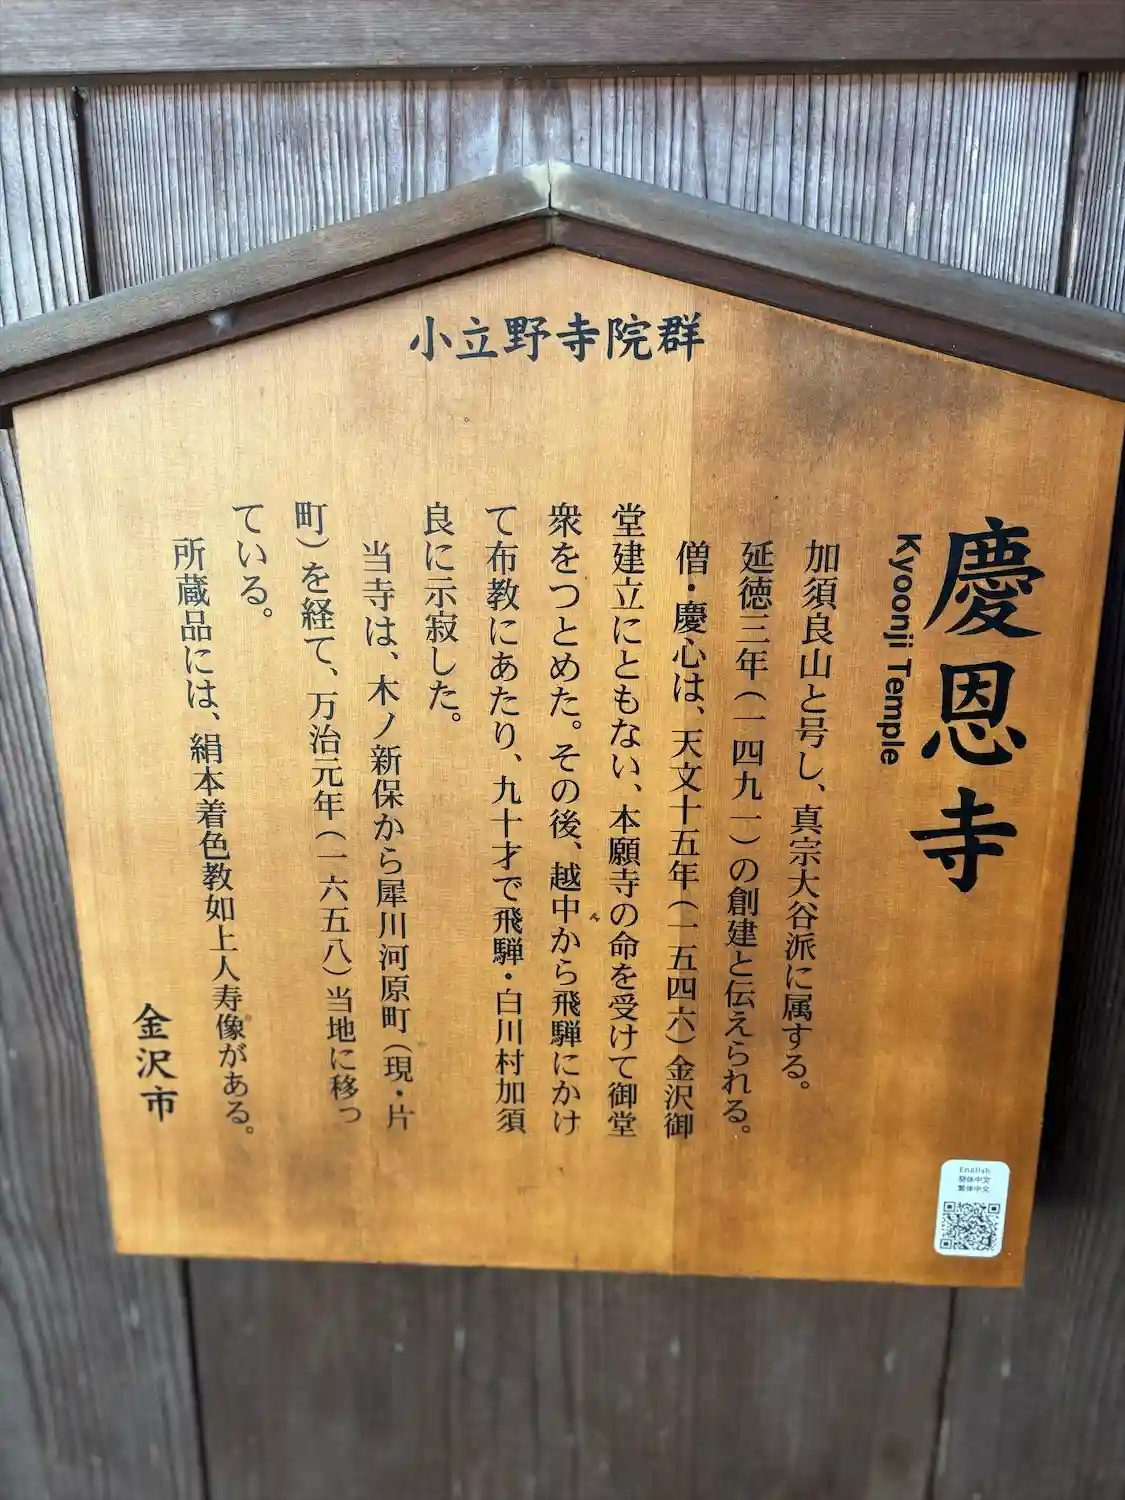 小立野寺院群
慶恩寺
Kyoonji Temple
加須良山と号し、真宗大谷派に属する。
延徳三年(一四九一)の創建と伝えられる。
僧・慶心は、天文十五年(一五四六)金沢御
堂建立にともない、本願寺の命を受けて御堂
衆をつとめた。その後、越中から飛騨にかけ
て布教にあたり、九十才で飛騨・白川村加須
良に示寂した。
当寺は、木ノ新保から犀川河原町(現・片
町)を経て、万治元年(一六五八)当地に移っ
ている。
所蔵品には、絹本着色教如上人寿像がある。
金沢市
English
簡体中文
繁体中文